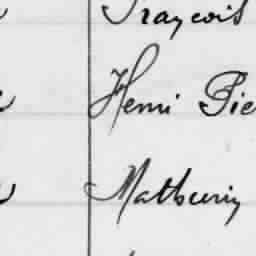 François
Henri Pie
Mathurin